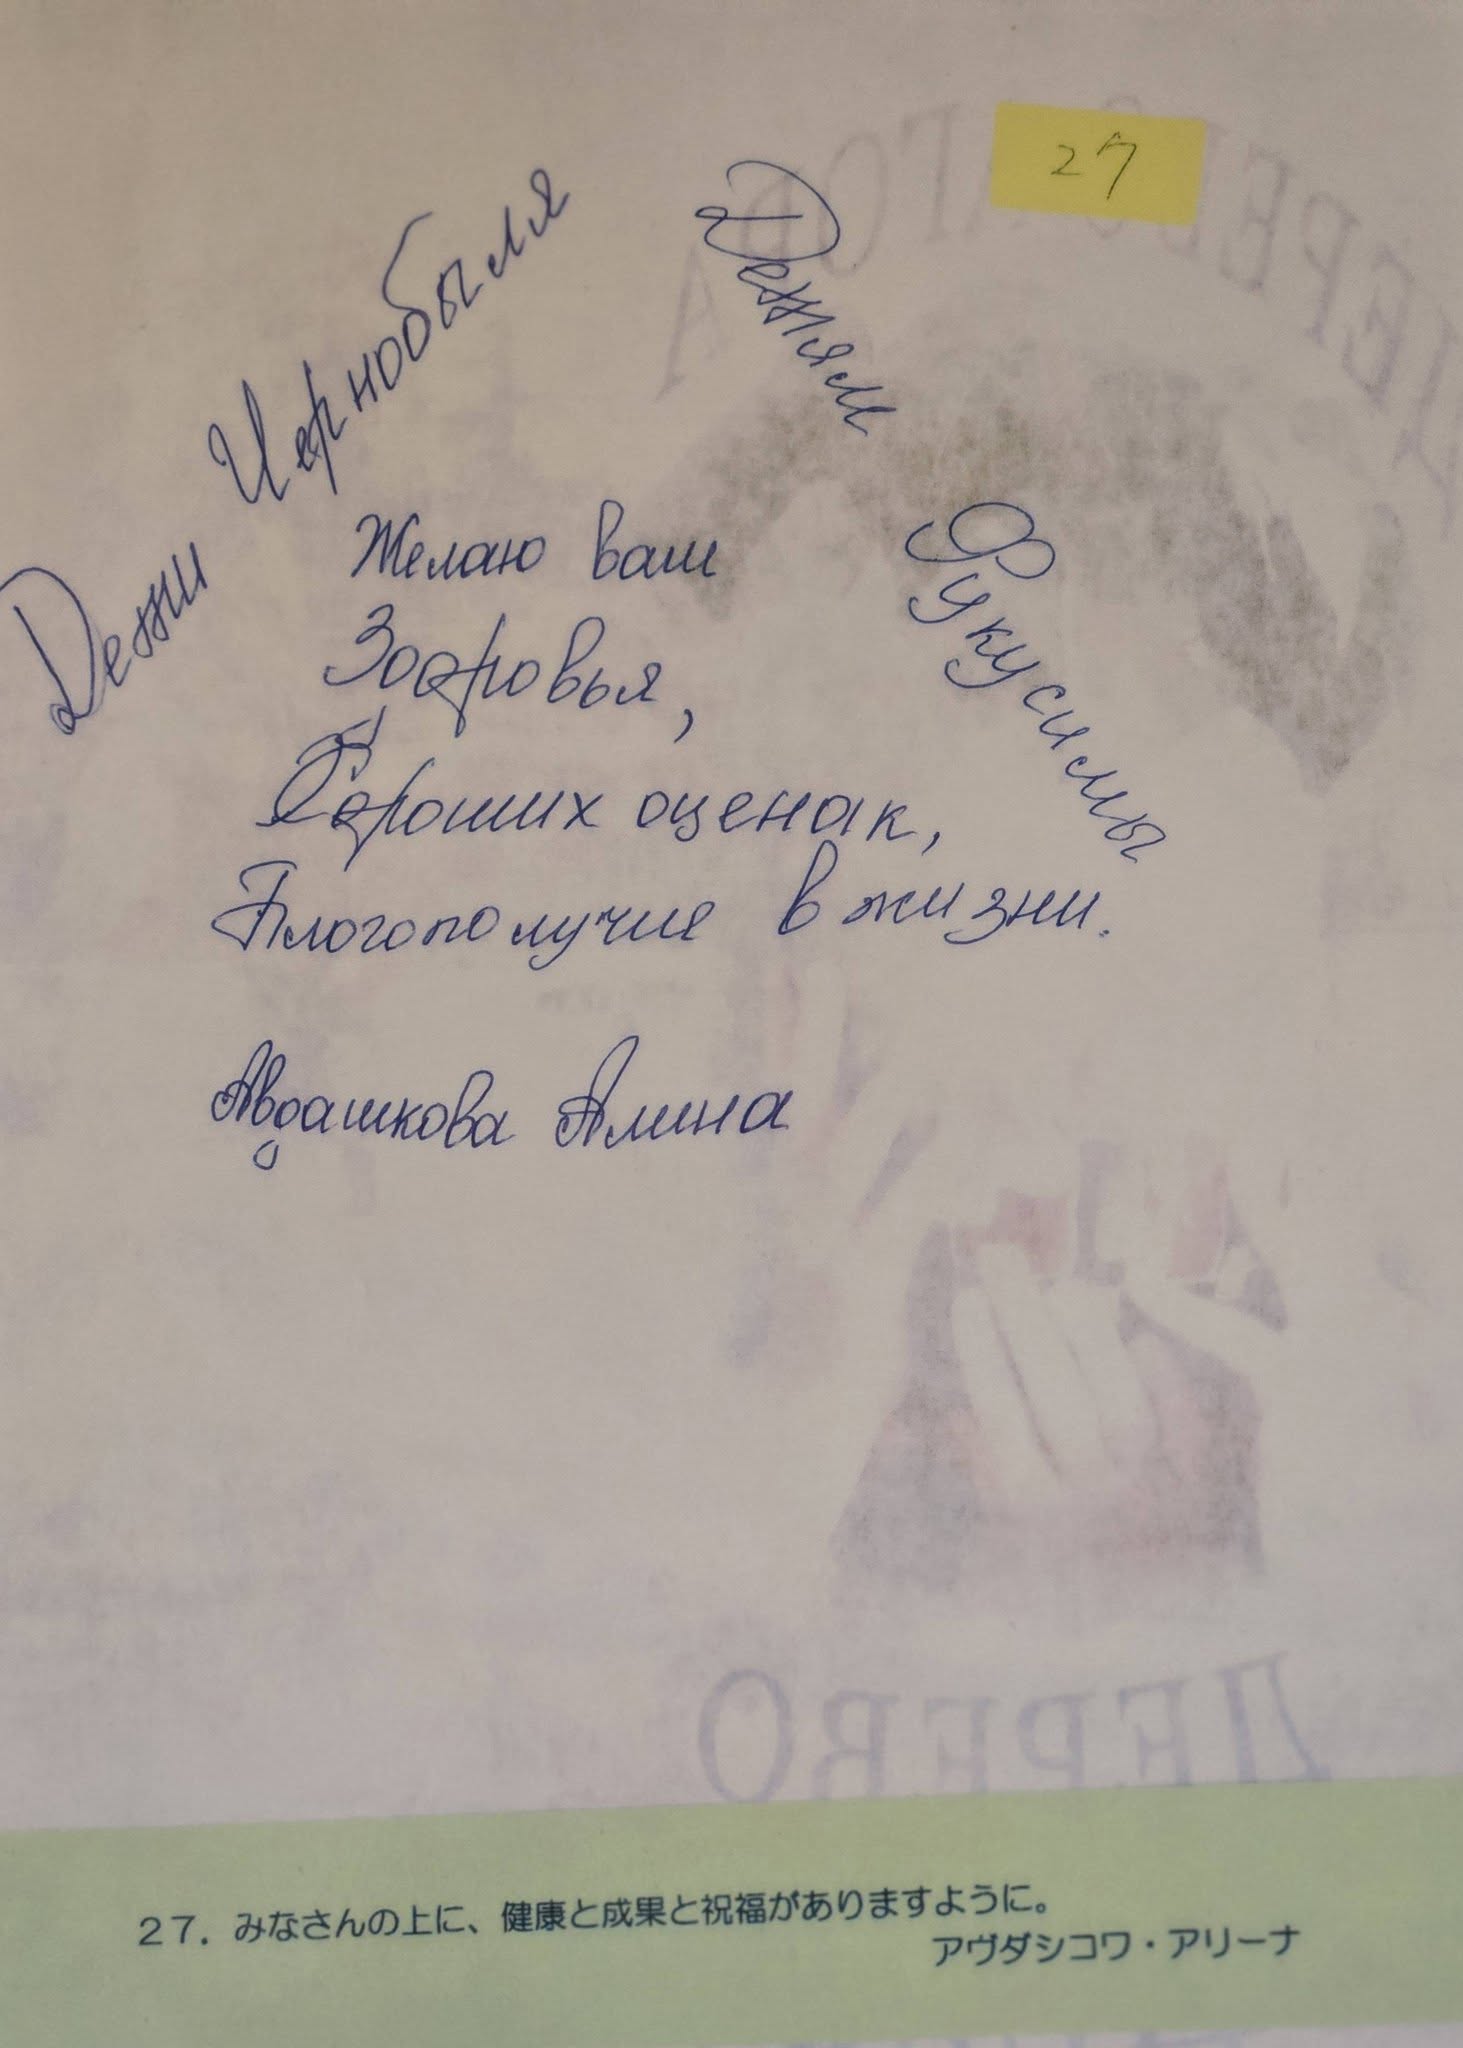 27
Дети Чернобыля
Детям Фукусимы
Желаю вам
Здоровья,
Хороших оценак,
Благополучие в жизни.
Авдашкова Алина
ДЕРЕВО
27. みなさんの上に、健康と成果と祝福がありますように。
アヴダシコワ・アリーナ